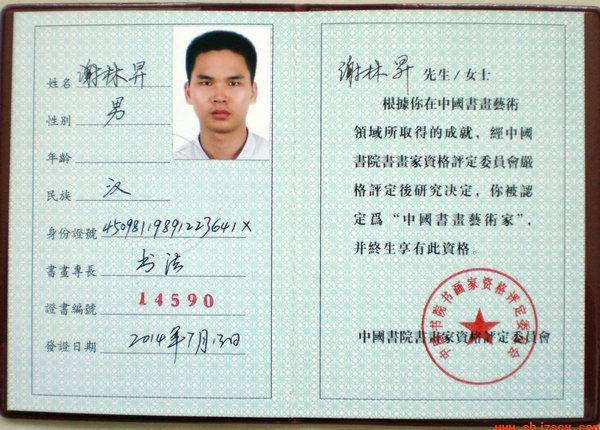 姓名 谢林昇
性別 男
年齡
民族 汉
身份證號 45098119891223641X
書畫專長 书法
證書編號 14590
發證日期 2014年7月13日
谢林昇 先生/女士
根據你在中國書畫藝術
領域所取得的成就，經中國
書院書畫家資格評定委員會嚴
格評定後研究決定，你被認
定爲“中國書畫藝術家”，
并終生享有此資格。
中國书院书画家资格评定委员会
中國書院書畫家資格評定委員會